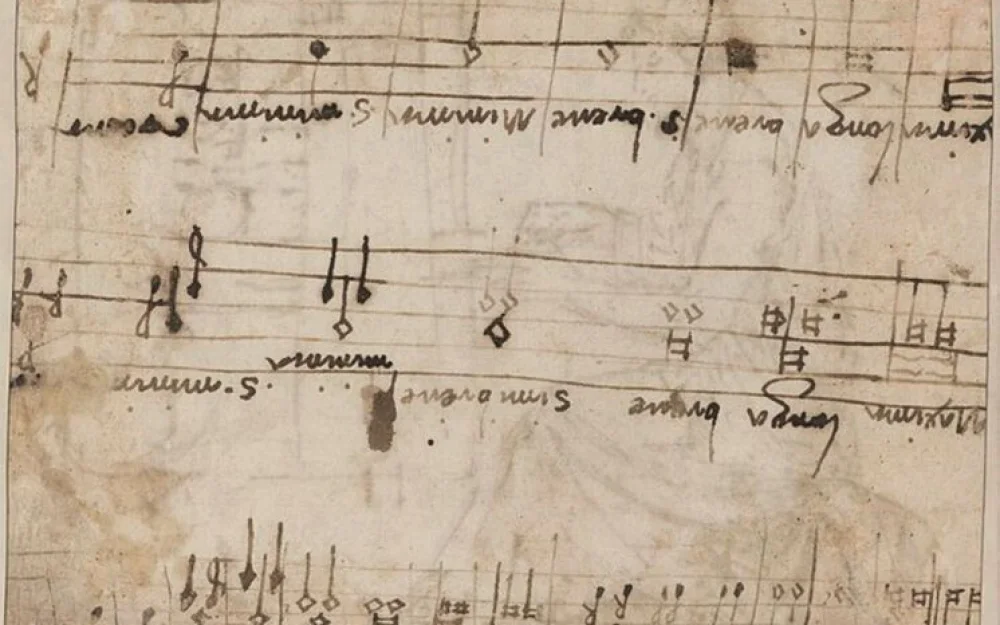 Maxima longa breve Simibreve minima S. minima
xima longa breve S. breve Minima S. minima